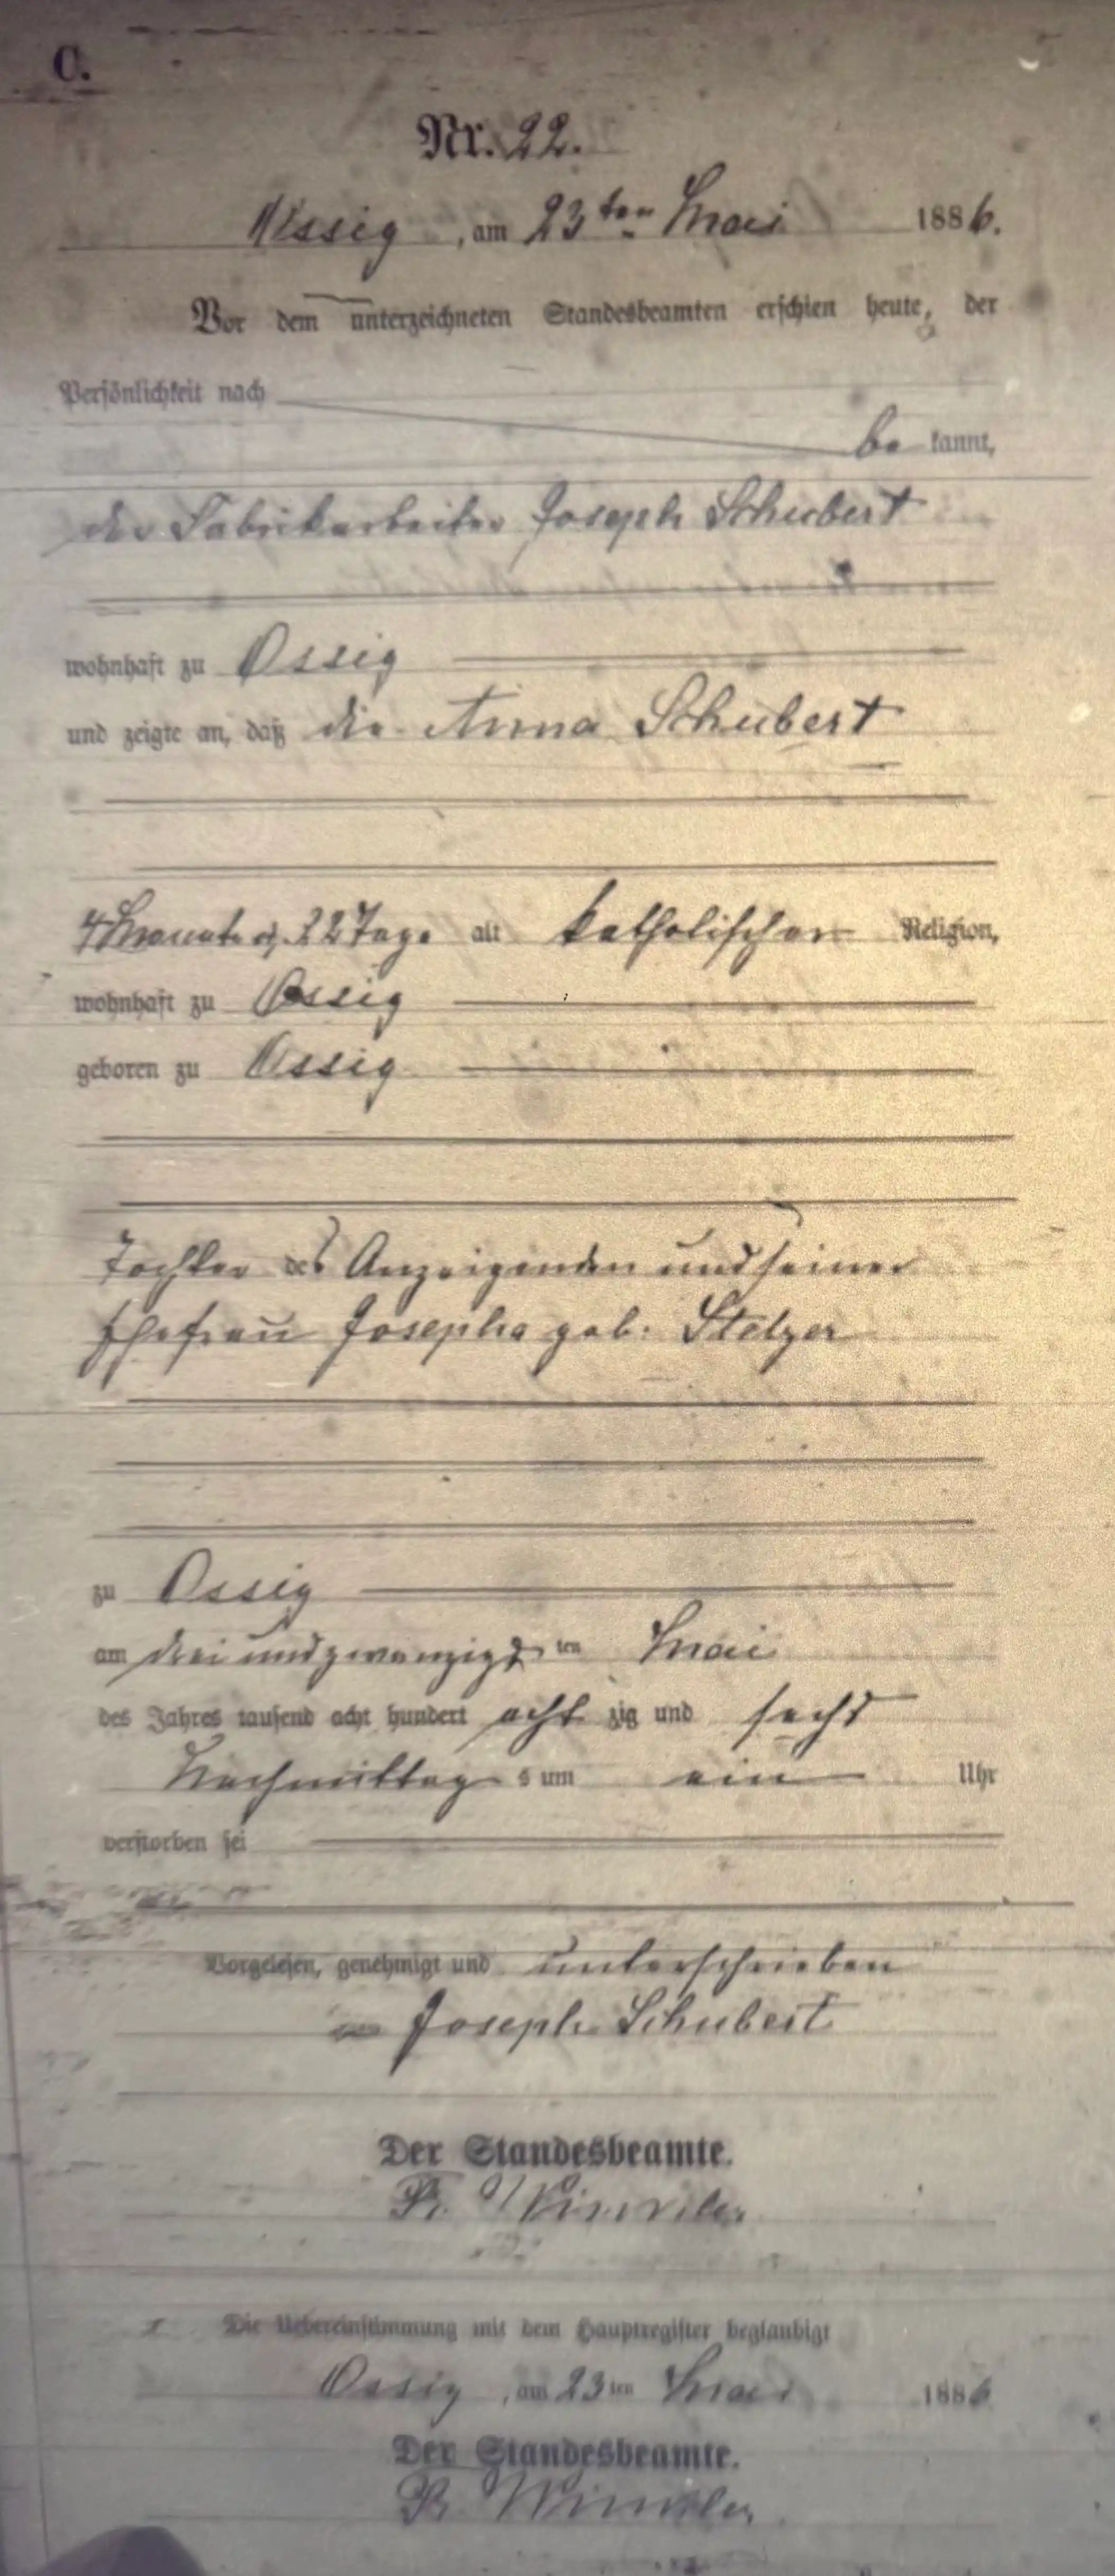 C.
Nr. 22.
Ossig, am 23ten Mai 1886.
Vor dem unterzeichneten Standesbeamten erschien heute, der
Persönlichkeit nach
be kannt,
der Fabrikarbeiter Joseph Schubert
wohnhaft zu Ossig
und zeigte an, daß die Anna Schubert
4 Monate u. 22 Tage alt katholischer Religion,
wohnhaft zu Ossig
geboren zu Ossig
Tochter des Anzeigenden und seiner
Ehefrau Josepha geb. Stelzer
zu Ossig
am drei und zwanzigsten Mai
des Jahres tausend acht hundert acht zig und sechs
Nachmittags um ein Uhr
verstorben sei
Vorgelesen, genehmigt und unterschrieben
Joseph Schubert
Der Standesbeamte.
Winkler
Die Uebereinstimmung mit dem Hauptregister beglaubigt
Ossig, am 23ten Mai 1886
Der Standesbeamte.
Winkler